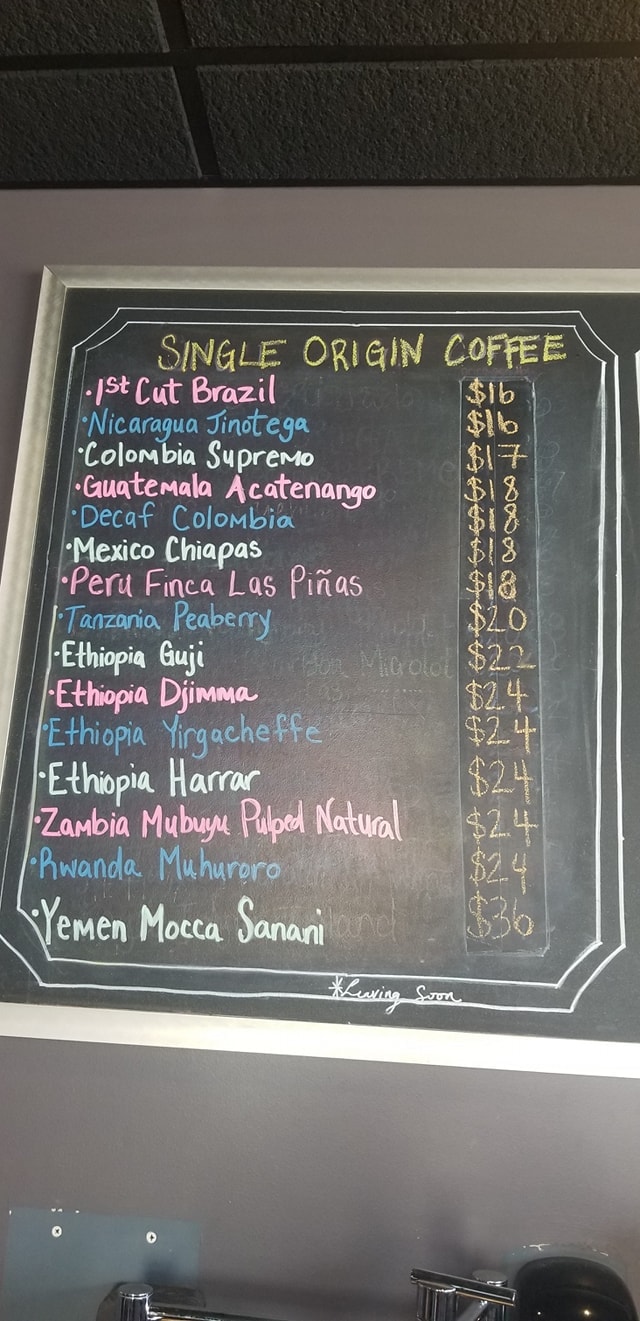 SINGLE ORIGIN COFFEE
·1st Cut Brazil $16
·Nicaragua Jinotega $16
·Colombia Supremo $17
·Guatemala Acatenango $18
·Decaf Colombia $18
·Mexico Chiapas $18
·Peru Finca Las Piñas $18
·Tanzania Peaberry $20
·Ethiopia Guji $22
·Ethiopia Djimma $24
·Ethiopia Yirgacheffe $24
·Ethiopia Harrar $24
·Zambia Mubuyu Pulped Natural $24
·Rwanda Muhuroro $24
·Yemen Mocca Sanani $36
*Leaving Soon